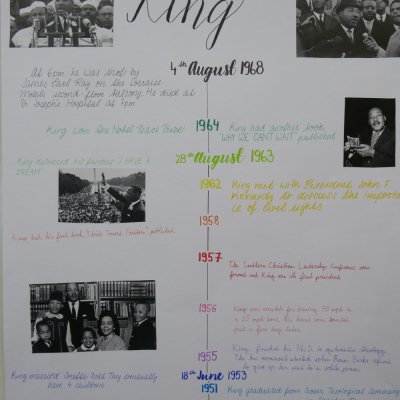 King
4th August 1968
At 6pm he was shot by
James Earl Ray on the Lorraine
Motels second-floor balcony. He died at
St Joseph's Hospital at 7pm
1964
King won the Nobel Peace Prize
King had another book,
"WHY WE CAN'T WAIT" published
28th August 1963
King delivered his famous "I HAVE A
DREAM".
1962
King met with President John F
Kennedy to discuss the importan
ce of civil rights
1958
Kings book his first book, "Stride Toward Freedom" published
1957
The Southern Christian Leadership Conference was
formed and King was its first president
1956
King was arrested for driving 30 mph in
a 25 mph zone. His house was bombed
just a few days later
1955
King finished his Ph.D. in systematic theology.
The bus movement started when Rosa Parks refused
to give up her seat to a white person
King married Coretta Scott. They eventually
have 4 children
18th June 1953
1951
King graduated from Crozer Theological Seminary